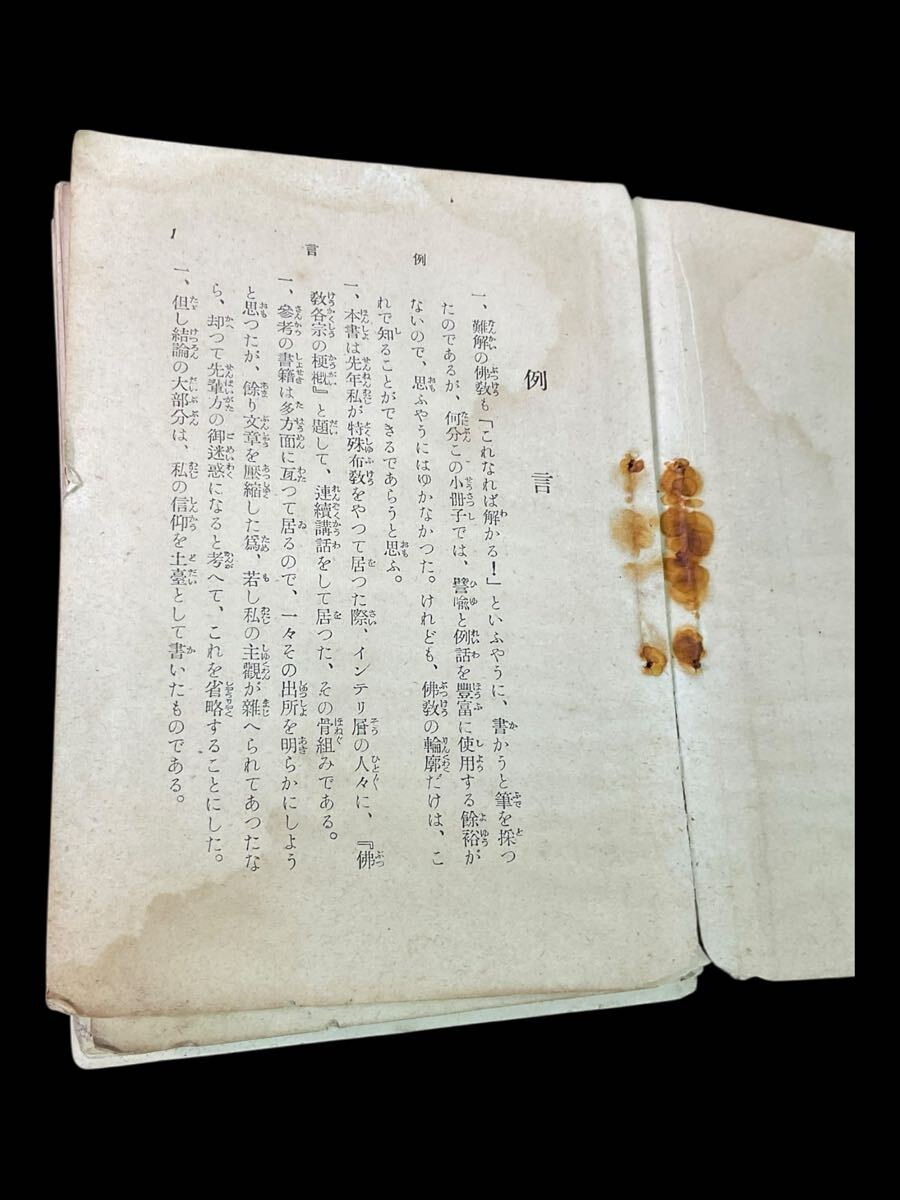 例言
一、難解の佛敎も「これなれば解かる！」といふやうに、書かうと筆を採つ
たのであるが、何分この小冊子では、譬喩と例話を豐富に使用する餘裕が
ないので、思ふやうにはゆかなかつた。けれども、佛敎の輪廓だけは、こ
れで知ることができるであらうと思ふ。
一、本書は先年私が特殊布敎をやつて居つた際、インテリ層の人々に、『佛
敎各宗の梗槪』と題して、連續講話をして居つた、その骨組みである。
一、參考の書籍は多方面に亙つて居るので、一々その出所を明らかにしよう
と思つたが、餘り文章を壓縮した爲、若し私の主觀が雜へられてあつたな
ら、却つて先輩方の御迷惑になると考へて、これを省略することにした。
一、但し結論の大部分は、私の信仰を土臺として書いたものである。
例言
1